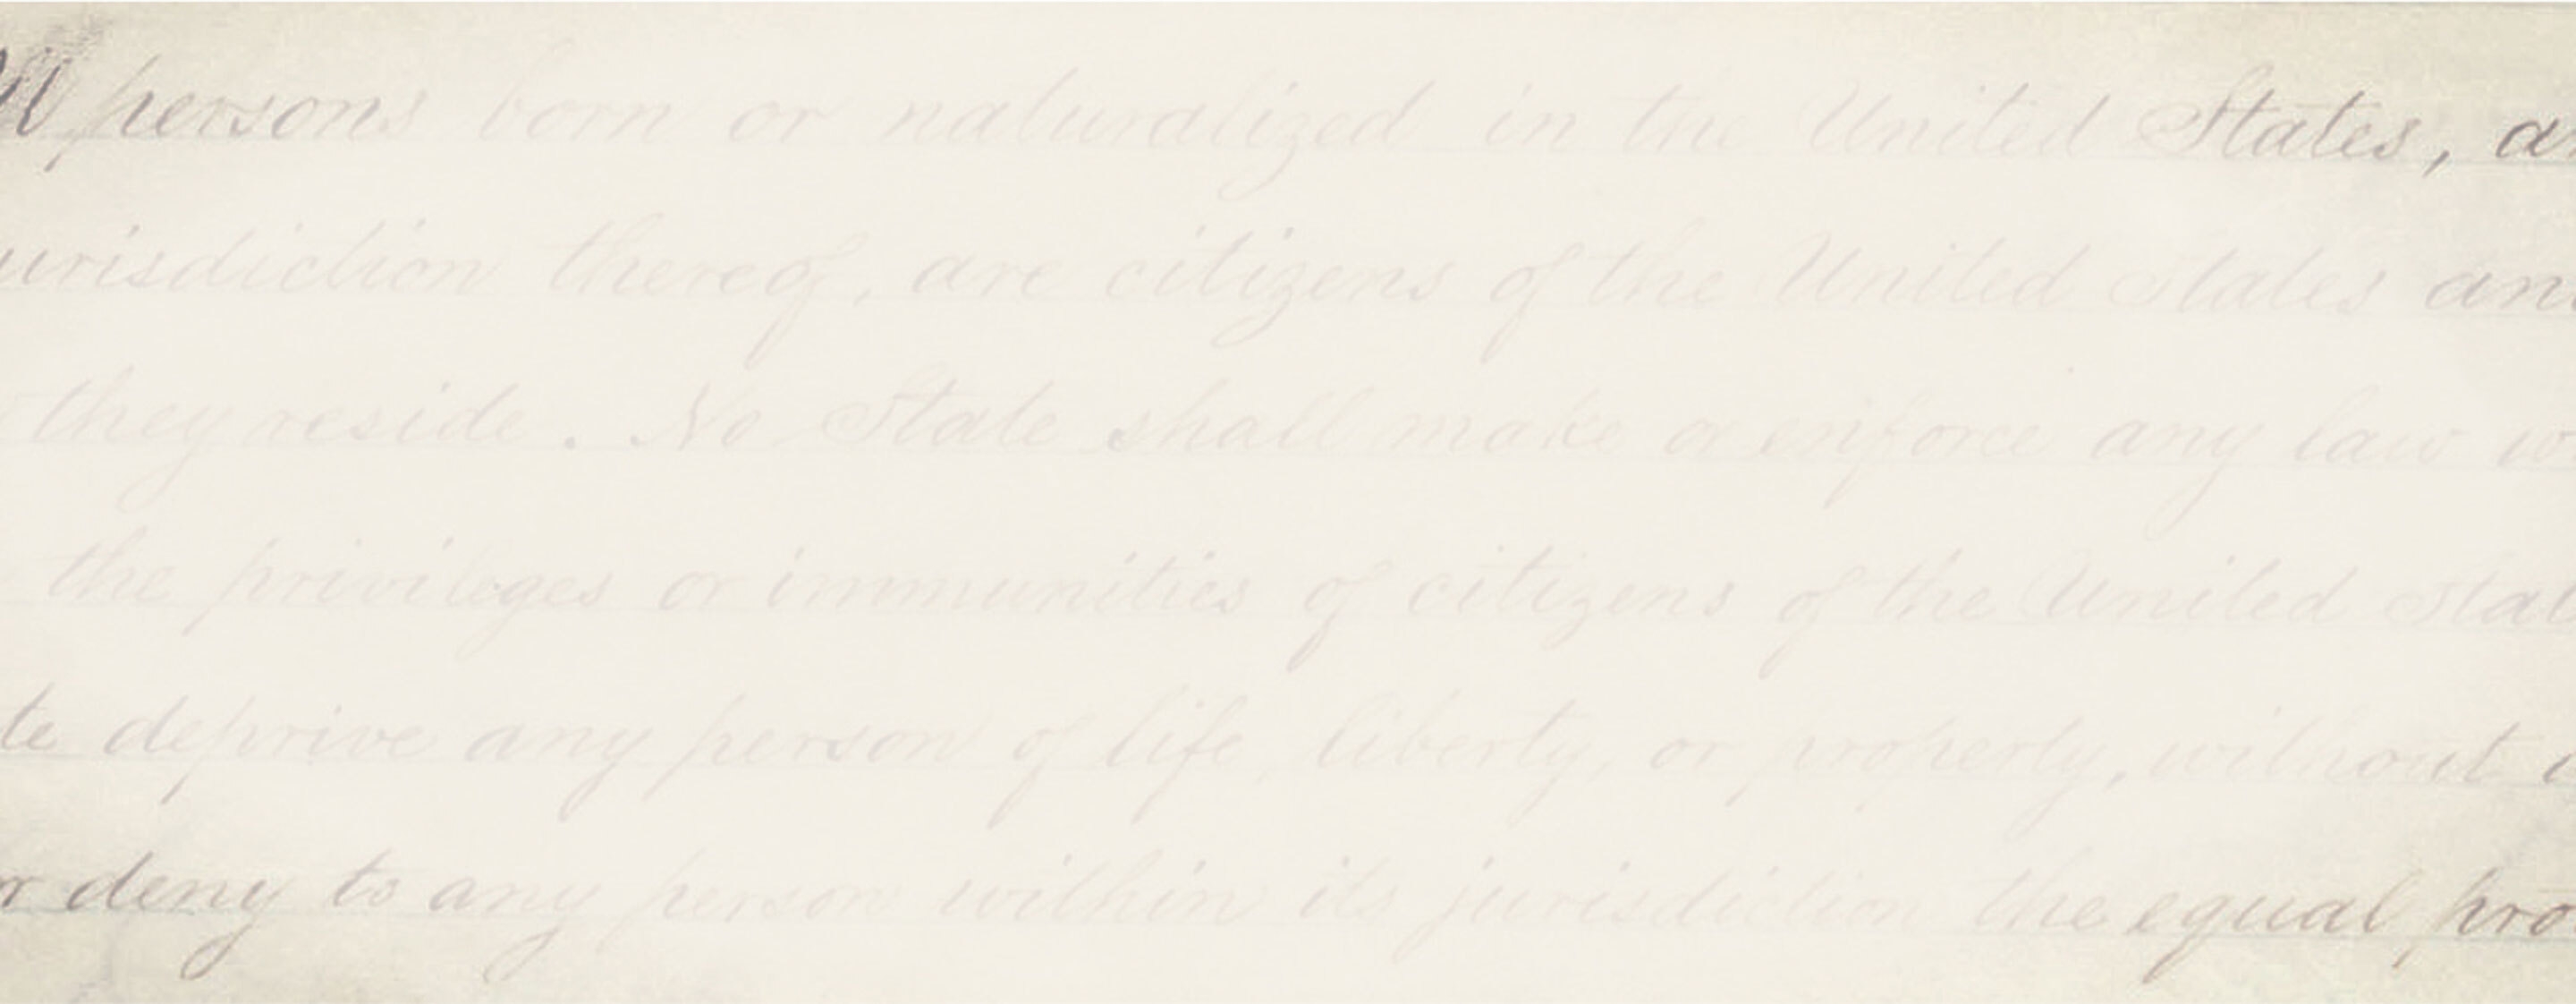 All persons born or naturalized in the United States, an
urisdiction thereof, are citizens of the United States and
they reside. No State shall make or enforce any law w
the privileges or immunities of citizens of the United Stat
te deprive any person of life, liberty, or property, without d
or deny to any person within its jurisdiction the equal pro